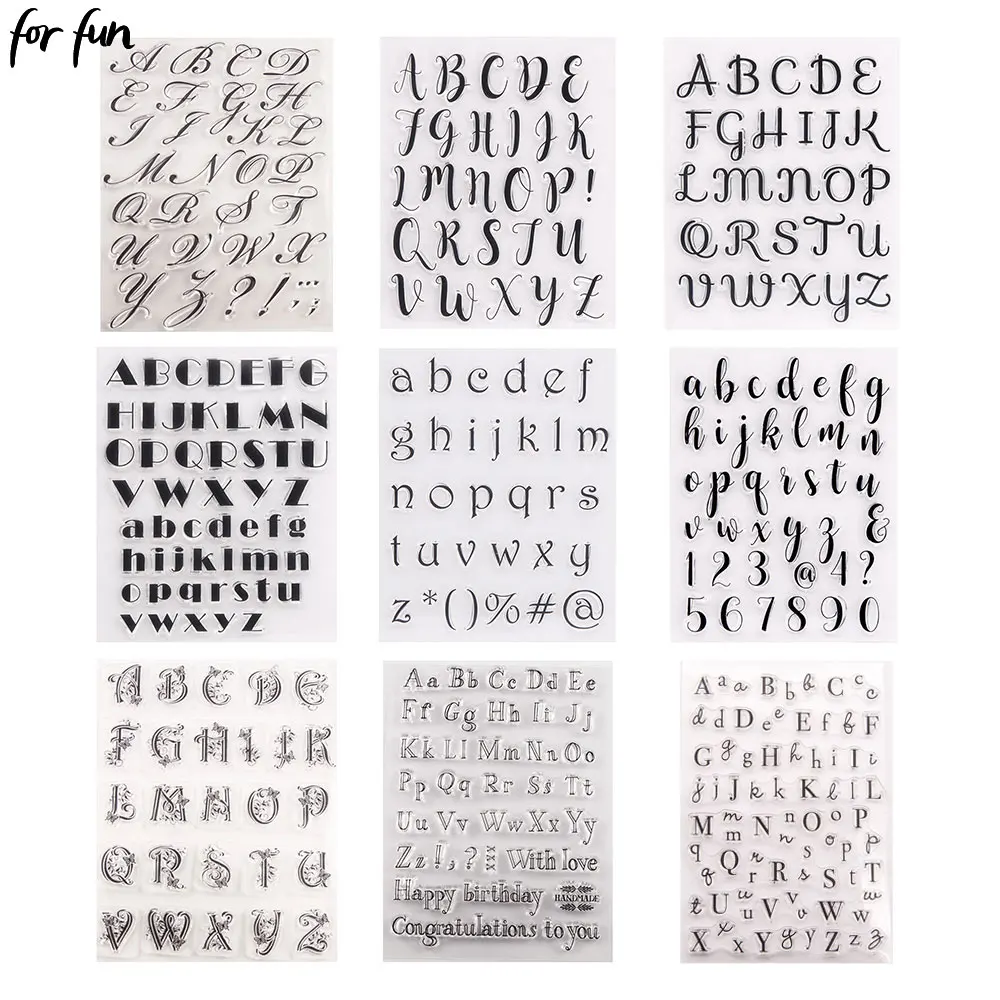 for fun
A B C D
E F G H
I J K L
M N O P
Q R S T
U V W X
Y Z ? ! : ;
A B C D E
F G H I J K
L M N O P !
Q R S T U
V W X Y Z
A B C D E
F G H I J K
L M N O P
Q R S T U
V W X Y Z
A B C D E F G
H I J K L M N
O P Q R S T U
V W X Y Z
a b c d e f g
h i j k l m n
o p q r s t u
v w x y z
a b c d e f
g h i j k l m
n o p q r s
t u v w x y
z * ( ) % # @
a b c d e f g
h i j k l m n
o p q r s t u
v w x y z &
1 2 3 @ 4 ?
5 6 7 8 9 0
A B C D E
F G H I J K
L M N O P
Q R S T U
V W X Y Z
Aa Bb Cc Dd Ee
Ff Gg Hh Ii Jj
Kk Ll Mm Nn Oo
Pp Qq Rr Ss Tt
Uu Vv Ww Xx Yy
Zz ! , ? With love
Happy birthday HANDMADE
Congratulations to you
A a a B b b C c c
d d D e e E f f F
G g g H h h i I i
j j J k k K l l L
M m m N n n O o o P p p
q q Q r r R s s S t T
t U u u V v v W w w
X x x Y y y Z z z